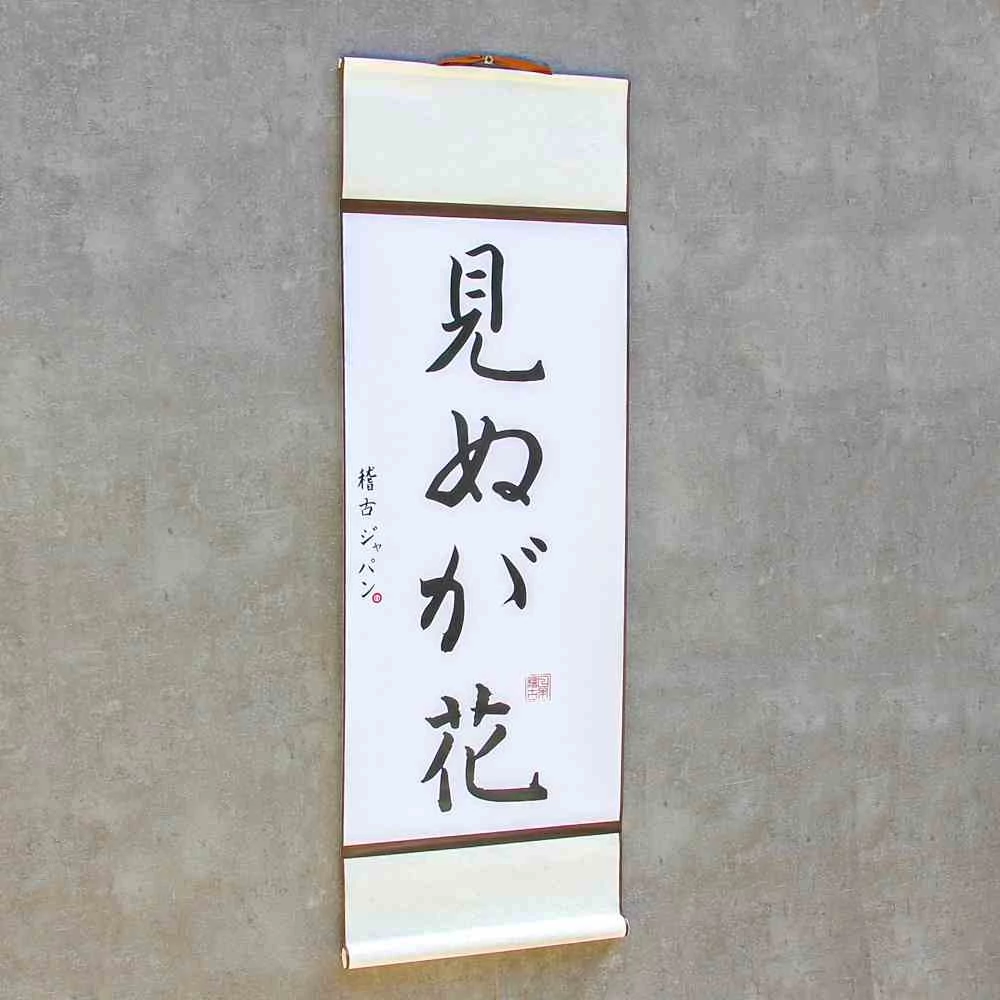 見ぬが花
稽古ジャパン